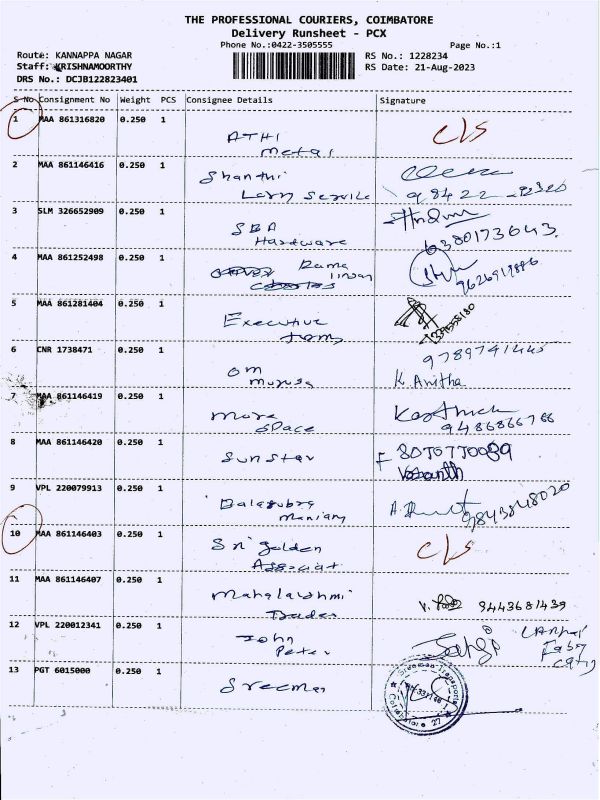 THE PROFESSIONAL COURIERS, COIMBATORE
Delivery Runsheet - PCX
Phone No.:0422-3505555 Page No.:1
Route: KANNAPPA NAGAR RS No.: 1228234
Staff: KRISHNAMOORTHY RS Date: 21-Aug-2023
DRS No.: DCJB122823401
S No Consignment No Weight PCS Consignee Details Signature
1 MAA 861316820 0.250 1 ATHI metal C/S
2 MAA 861146416 0.250 1 Shanthi Lorry Service
3 SLM 326652909 0.250 1 SBA Hardware 6380173643.
4 MAA 861252498 0.250 1 Rama
5 MAA 861281404 0.250 1 Executive
6 CNR 1738471 0.250 1 om muruga K. Anitha
7 MAA 861146419 0.250 1 more space Karthick 9486866766
8 MAA 861146420 0.250 1 Sun Star Vasanth
9 VPL 220079913 0.250 1 Balasubra maniam 9843848020
10 MAA 861146403 0.250 1 Sri golden Associat C/S
11 MAA 861146407 0.250 1 Mahalakshmi 9443681439
12 VPL 220012341 0.250 1 John Peter
13 PGT 6015000 0.250 1 Sreeman
Sreeman Transports
Coimbatore